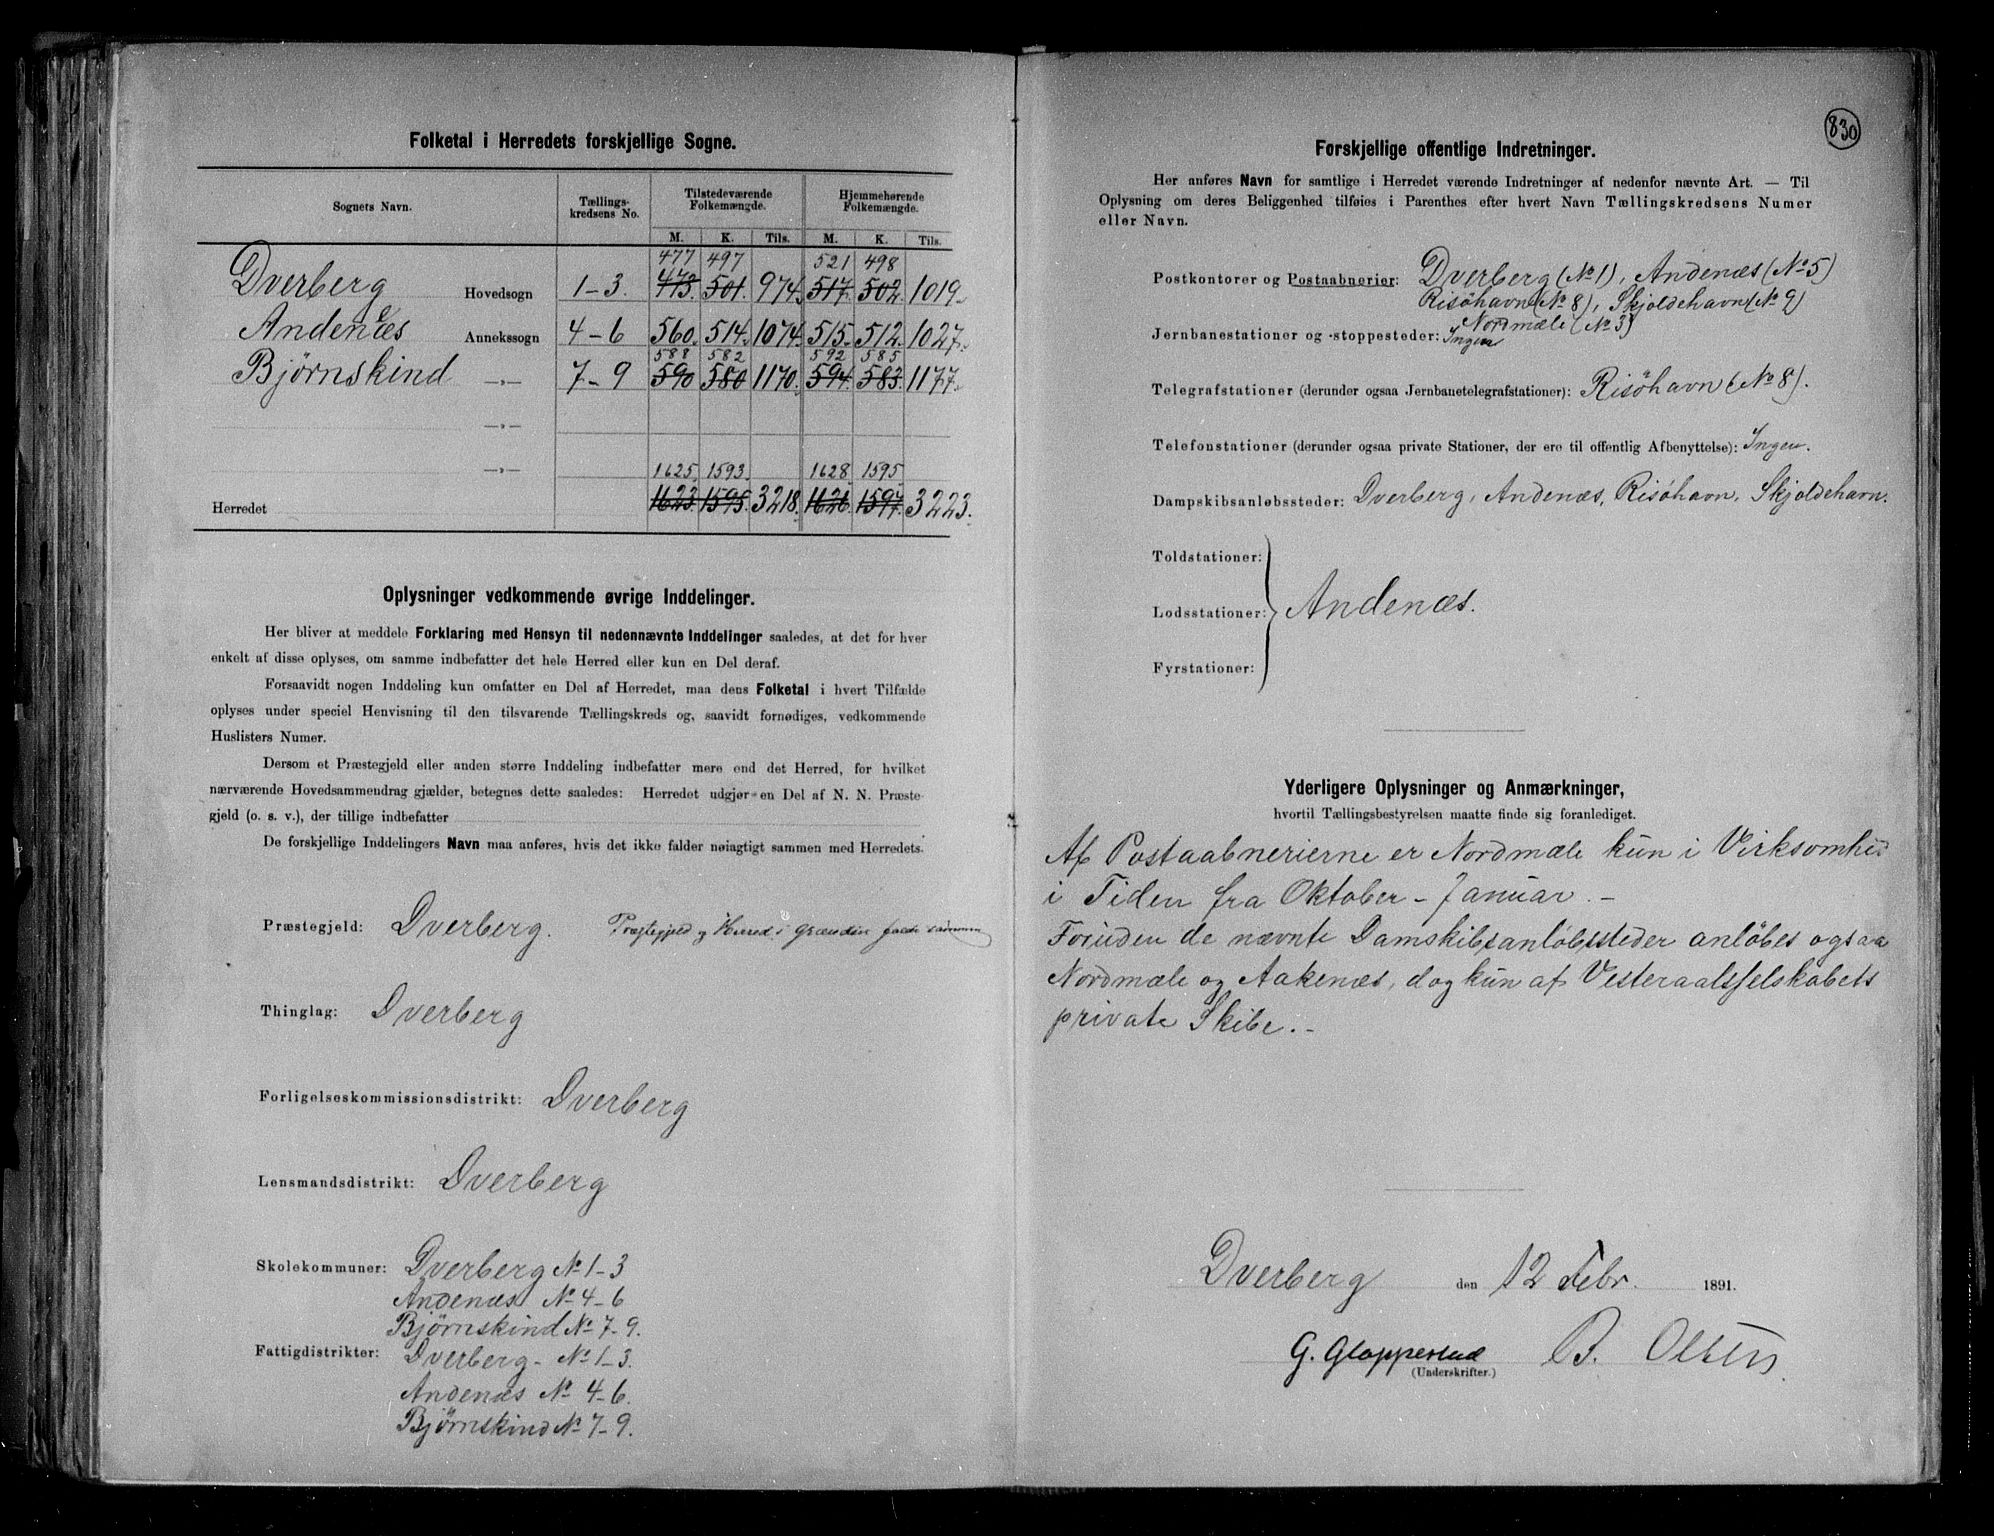 Folketal i Herredets forskjellige Sogne.
Sognets Navn. Tællings-kredsens No. Tilstedeværende Folkemængde. Hjemmehørende Folkemængde.
M. K. Tils. M. K. Tils.
477 497 521 498
Dverberg Hovedsogn 1-3. 473. 501. 974. 517. 502. 1019.
Andenæs Annekssogn 4-6 560. 514. 1074. 515. 512. 1027.
588 582 592 585
Bjørnskind -„- 7-9 590 580 1170. 594. 583. 1177.
-„-
1625. 1593. 1628 1595.
-„-
Herredet 1623. 1595. 3218. 1626. 1597. 3223.
Oplysninger vedkommende øvrige Inddelinger.
Her bliver at meddele Forklaring med Hensyn til nedennævnte Inddelinger saaledes, at det for hver
enkelt af disse oplyses, om samme indbefatter det hele Herred eller kun en Del deraf.
Forsaavidt nogen Inddeling kun omfatter en Del af Herredet, maa dens Folketal i hvert Tilfælde
oplyses under speciel Henvisning til den tilsvarende Tællingskreds og, saavidt fornødiges, vedkommende
Huslisters Numer.
Dersom et Præstegjeld eller anden større Inddeling indbefatter mere end det Herred, for hvilket
nærværende Hovedsammendrag gjælder, betegnes dette saaledes: Herredet udgjør en Del af N. N. Præste-
gjeld (o. s. v.), der tillige indbefatter
De forskjellige Inddelingers Navn maa anføres, hvis det ikke falder nøiagtigt sammen med Herredets.
Præstegjeld: Dverberg. Præstegjeld og Herred i Grændsen falde sammen
Thinglag: Dverberg
Forligelseskommissionsdistrikt: Dverberg
Lensmandsdistrikt: Dverberg
Skolekommuner: Dverberg No 1-3
Andenæs No 4-6
Bjørnskind No 7-9.
Fattigdistrikter: Dverberg - No 1-3.
Andenæs No 4-6.
Bjørnskind No 7-9.
830
Forskjellige offentlige Indretninger.
Her anføres Navn for samtlige i Herredet værende Indretninger af nedenfor nævnte Art. — Til
Oplysning om deres Beliggenhed tilføies i Parenthes efter hvert Navn Tællingskredsens Numer
eller Navn.
Postkontorer og Postaabnerier: Dverberg (No 1), Andenæs (No 5)
Risøhavn (No 8), Skjoldehavn (No 9)
Nordmæle (No 3)
Jernbanestationer og -stoppesteder: Ingen
Telegrafstationer (derunder ogsaa Jernbanetelegrafstationer): Risøhavn (No 8).
Telefonstationer (derunder ogsaa private Stationer, der ere til offentlig Afbenyttelse): Ingen.
Dampskibsanløbssteder: Dverberg, Andenæs, Risøhavn, Skjoldehavn.
Toldstationer:
Lodsstationer: Andenæs.
Fyrstationer:
Yderligere Oplysninger og Anmærkninger,
hvortil Tællingsbestyrelsen maatte finde sig foranlediget.
Af Postaabnerierne er Nordmæle kun i Virksomhed
i Tiden fra Oktober - Januar. -
Foruden de nævnte Damskibsanløbssteder anløbes ogsaa
Nordmæle og Aakenæs, dog kun af Vesteraalsselskabets
private Skibe. -
Dverberg den 12 Febr. 1891.
G. Gloppestad B. Olsen
(Underskrifter.)